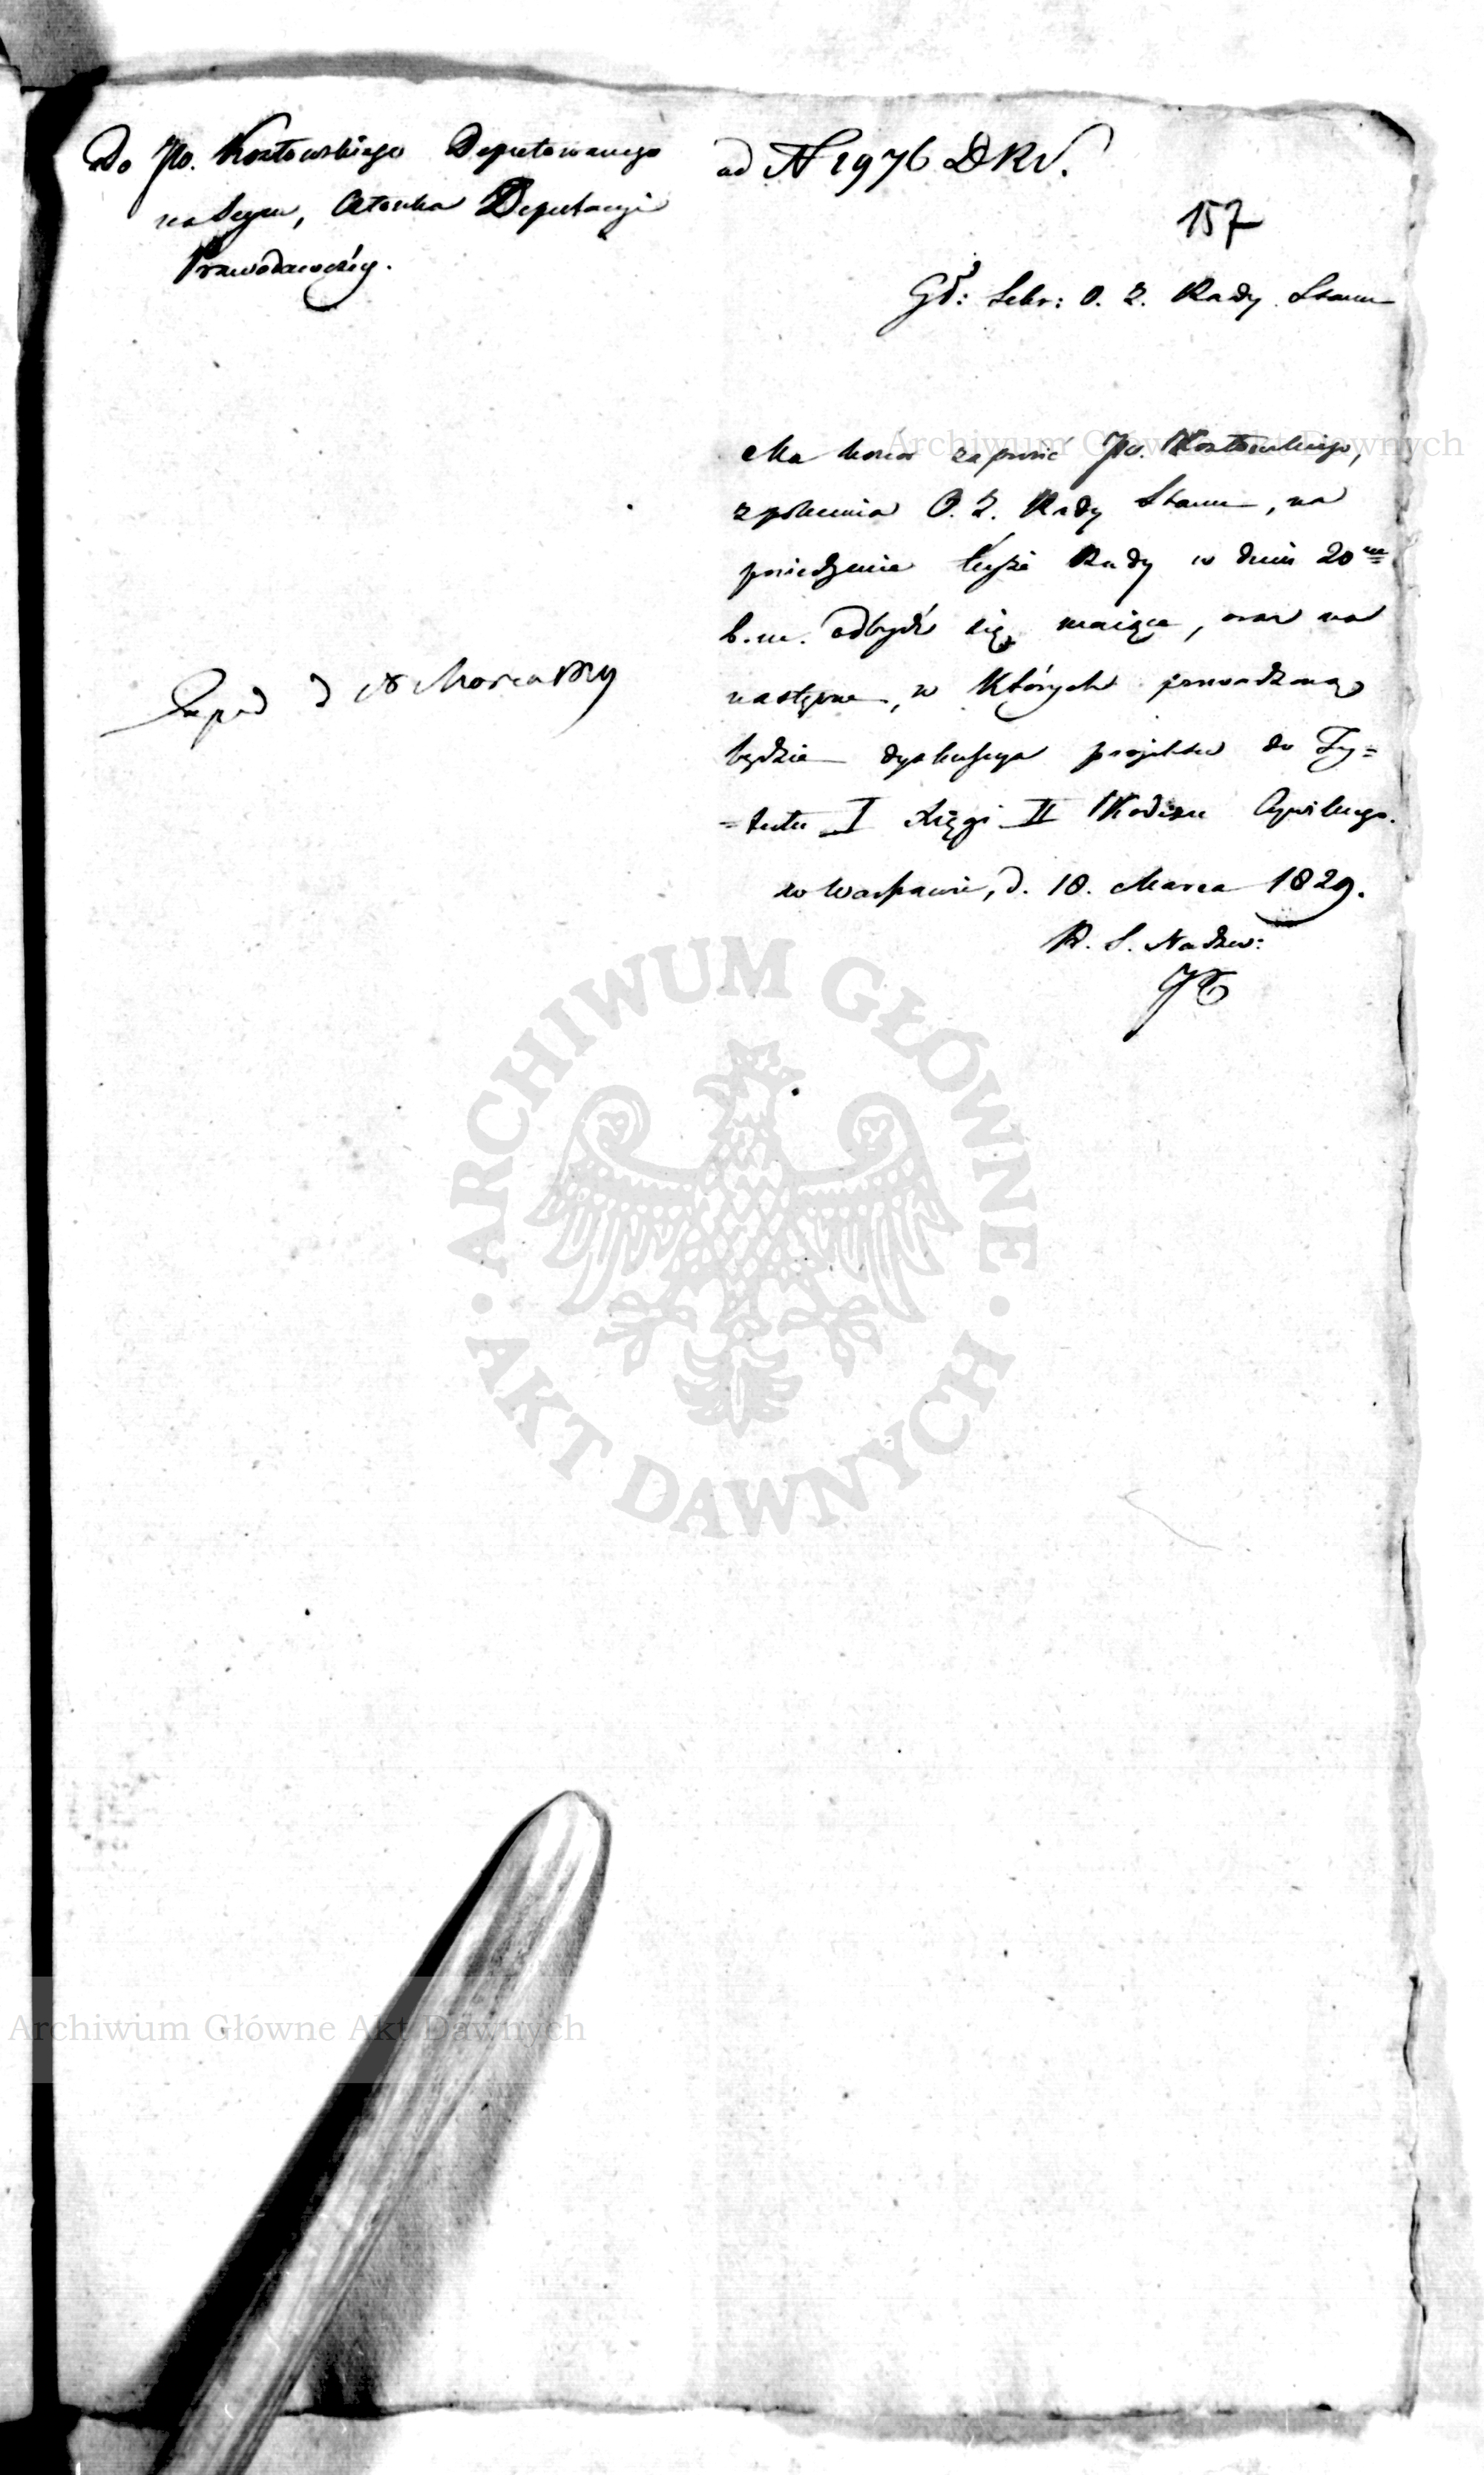 Do JW. Kozłowskiego Deputowanego
na Seym, Członka Deputacyi
Prawodawczéy.
ad N 1976 DKV.
157
Gł: Sekr: O. Z. Rady Stanu
Ma honor zaprosić JW. Kozłowskiego,
z polecenia O. Z. Rady Stanu, na
posiedzenie teyże Rady w dniu 20
b.m. odbyć się maiące, oraz na
następne, w których prowadzoną
będzie dyskussya projektu do Ty=
=tułu I Księgi II Kodexu Cywilnego.
w Warszawie, d. 18. Marca 1829.
R. S. Nadzw:
d 18 Marca
Archiwum Główne Akt Dawnych
ARCHIWUM GŁÓWNE
AKT DAWNYCH
Archiwum Główne Akt Dawnych